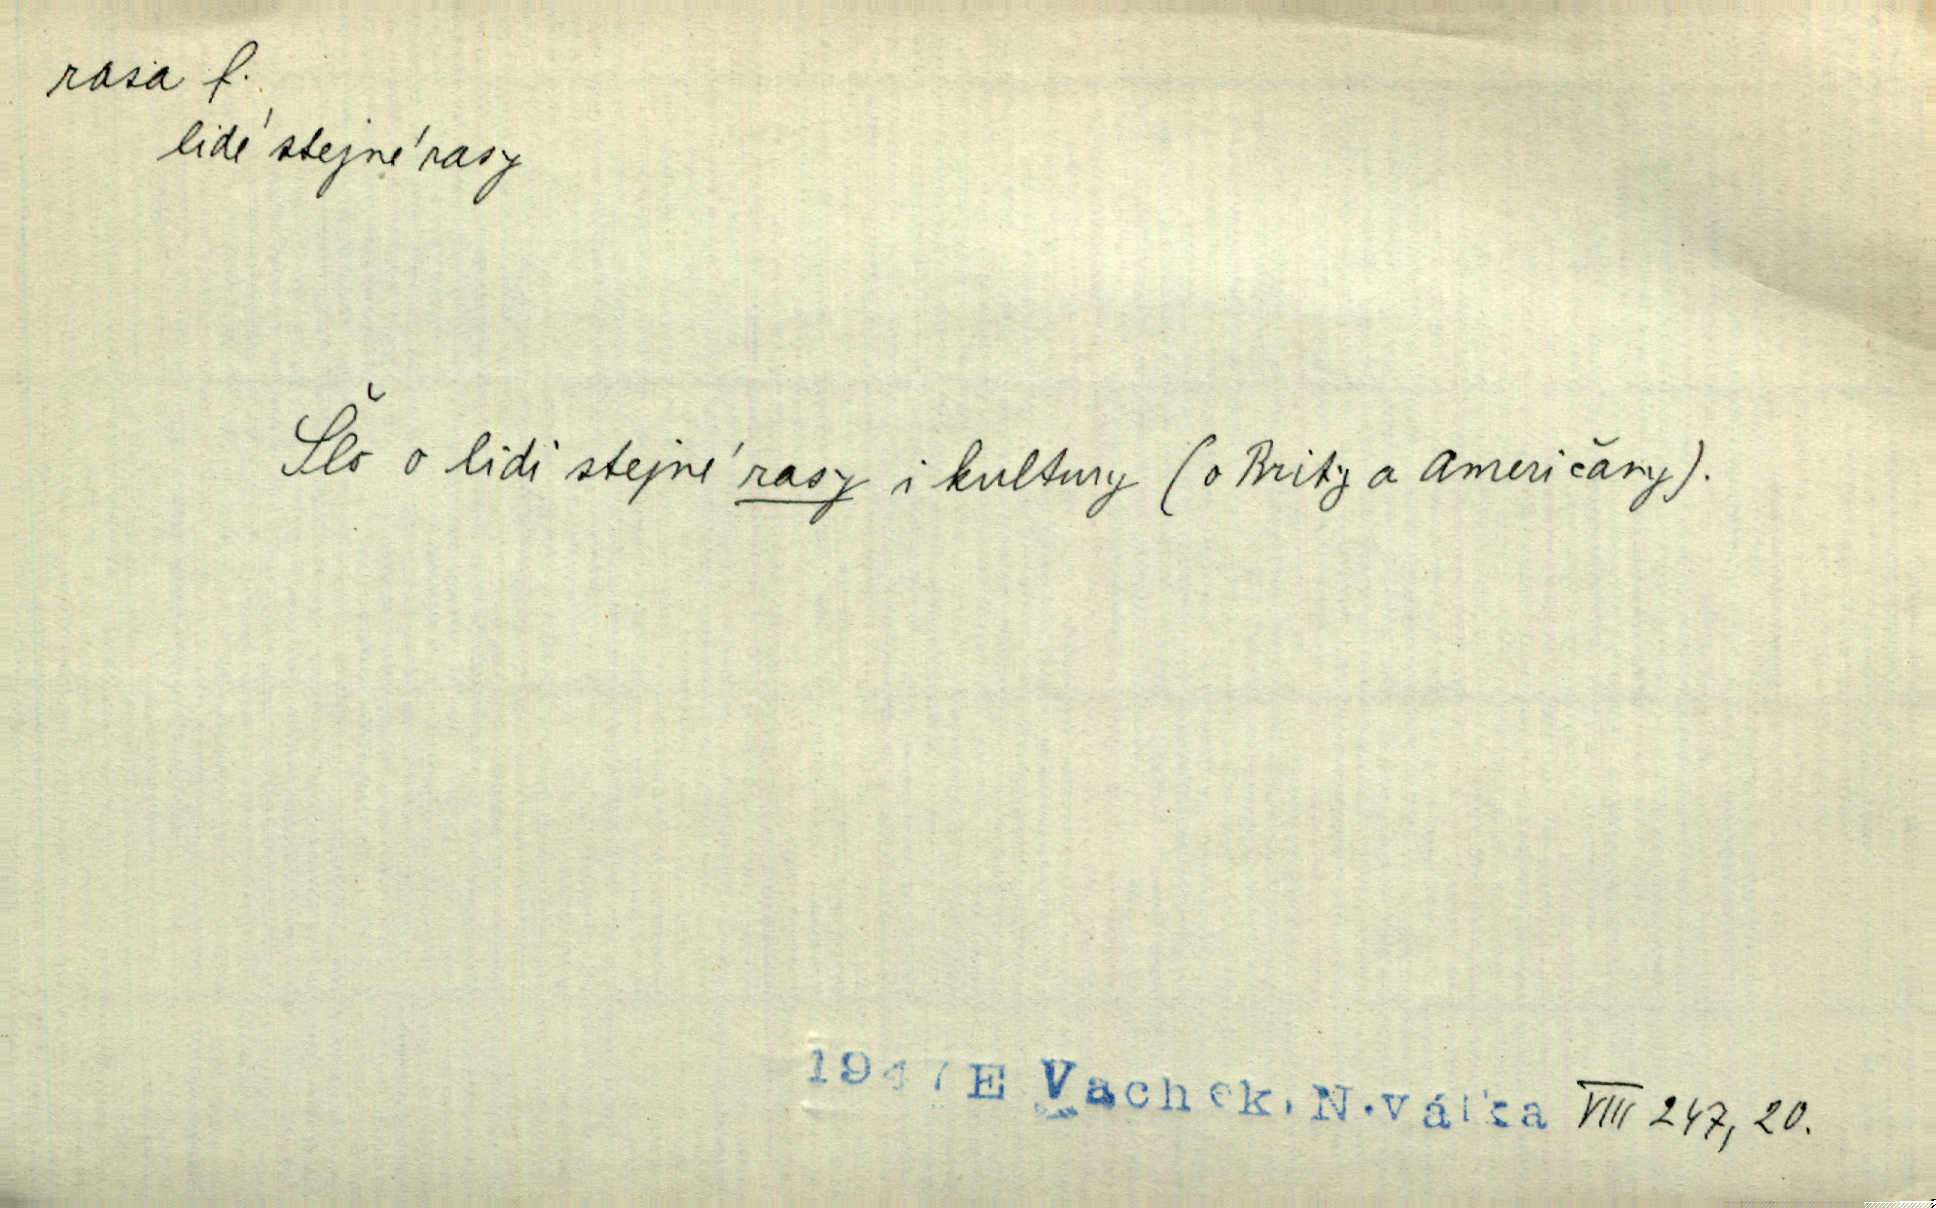 rasa f.
lidé stejné rasy
Šlo o lidi stejné rasy i kultury (o Brity a Američany).
1947 E Vachek, N. válka VIII 247, 20.